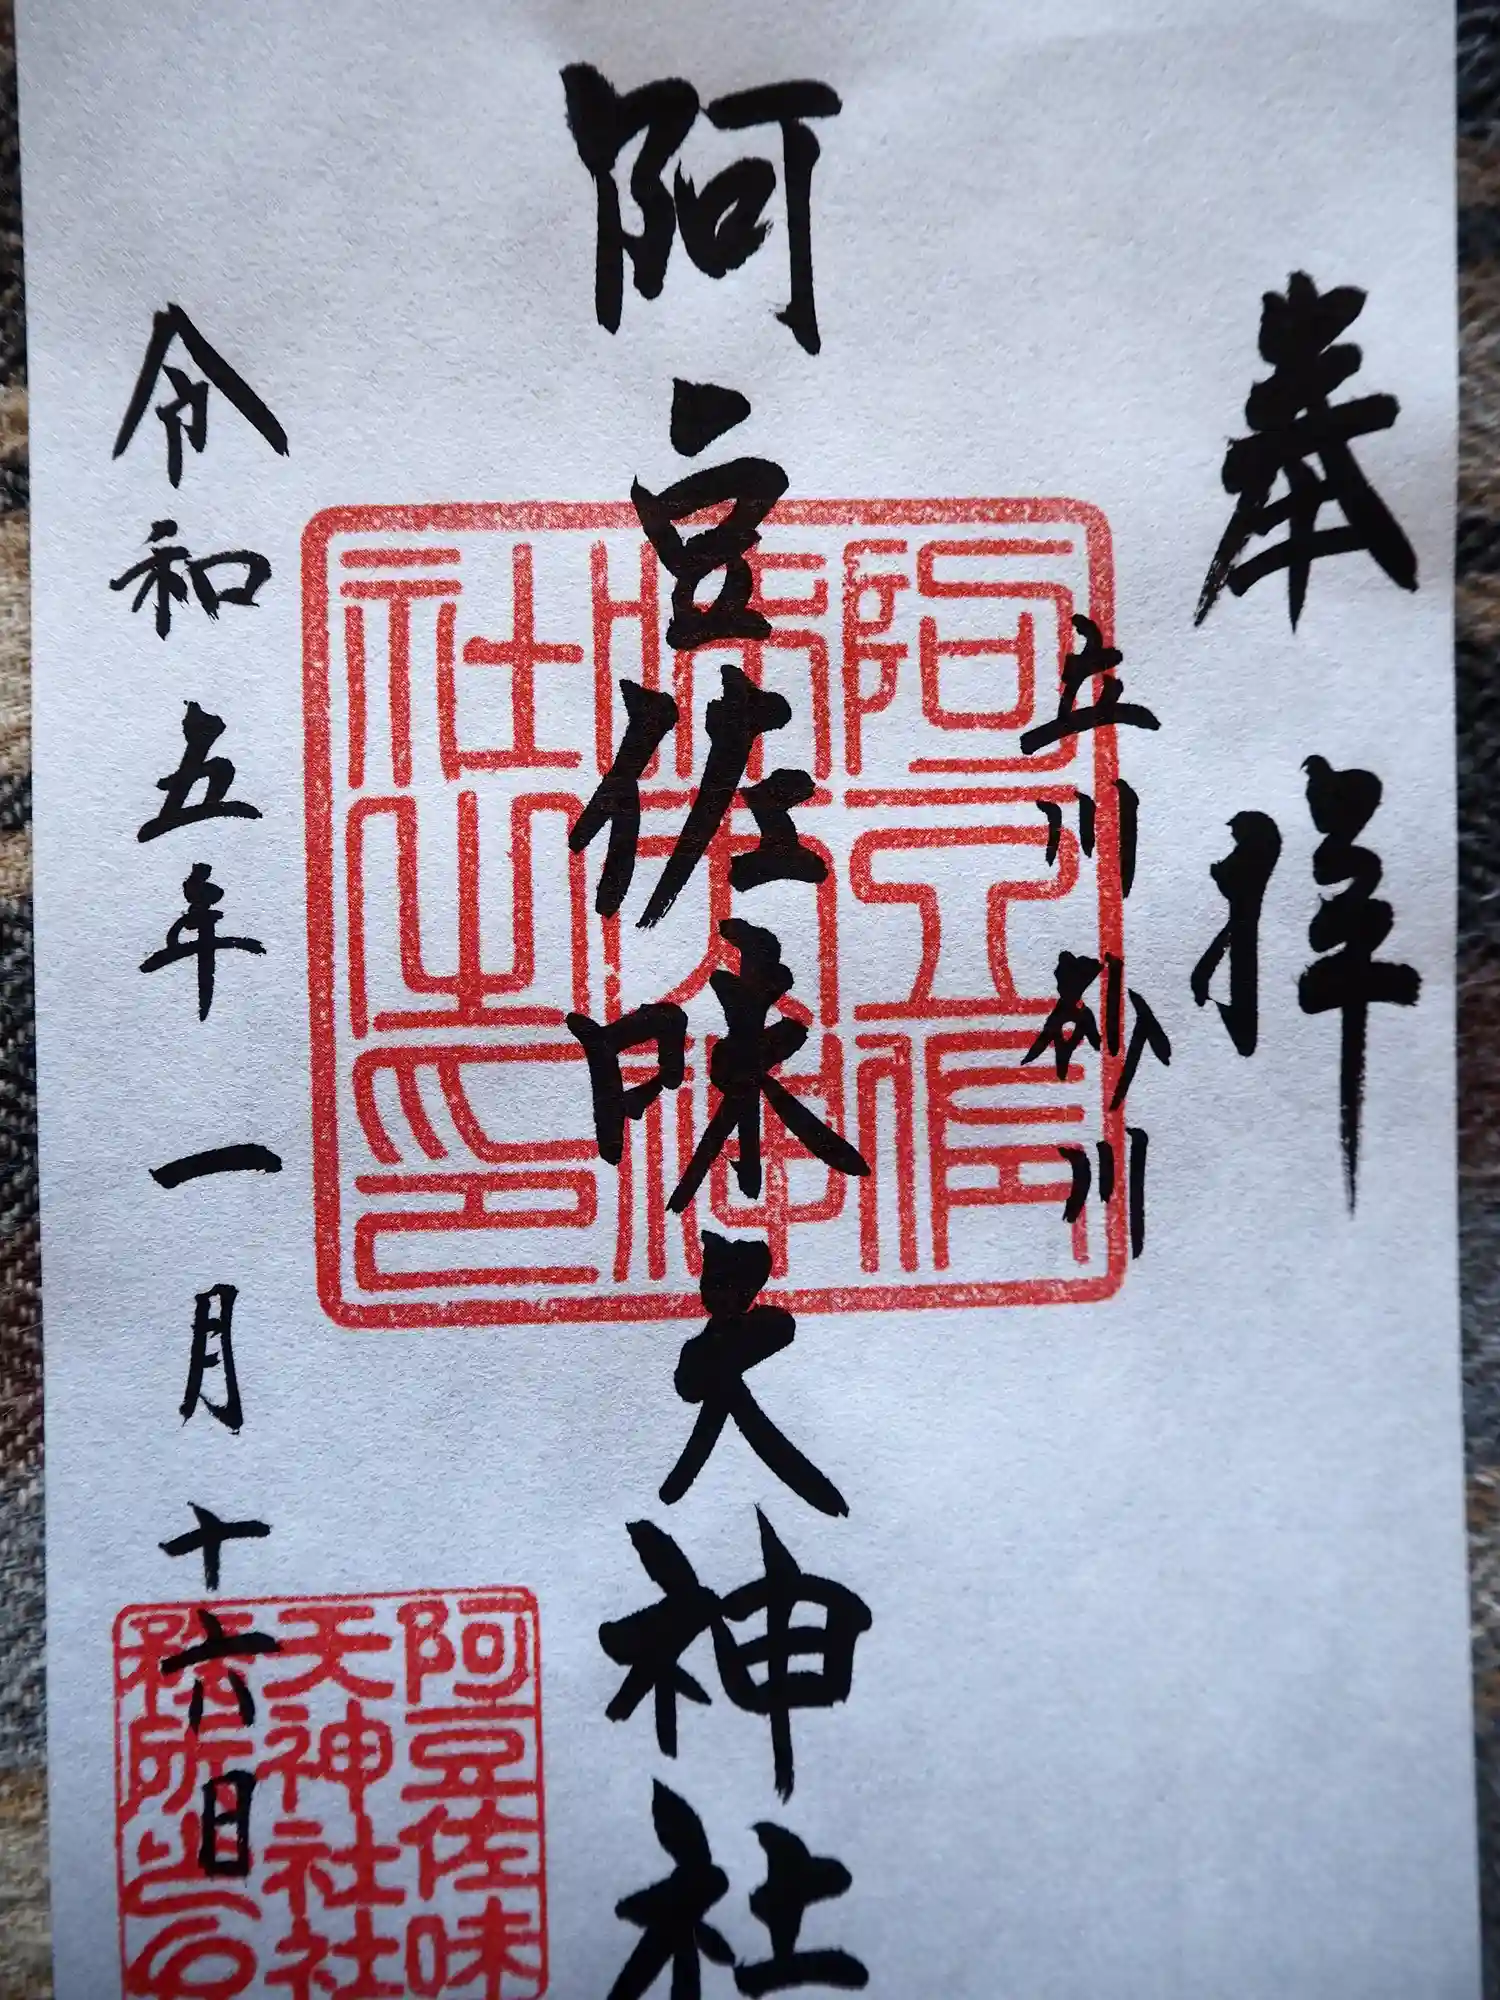 奉拝
立川砂川
阿豆佐味天神社
令和五年一月十六日
阿豆佐
味天神
社之印
阿豆佐味
天神社社
務所之印